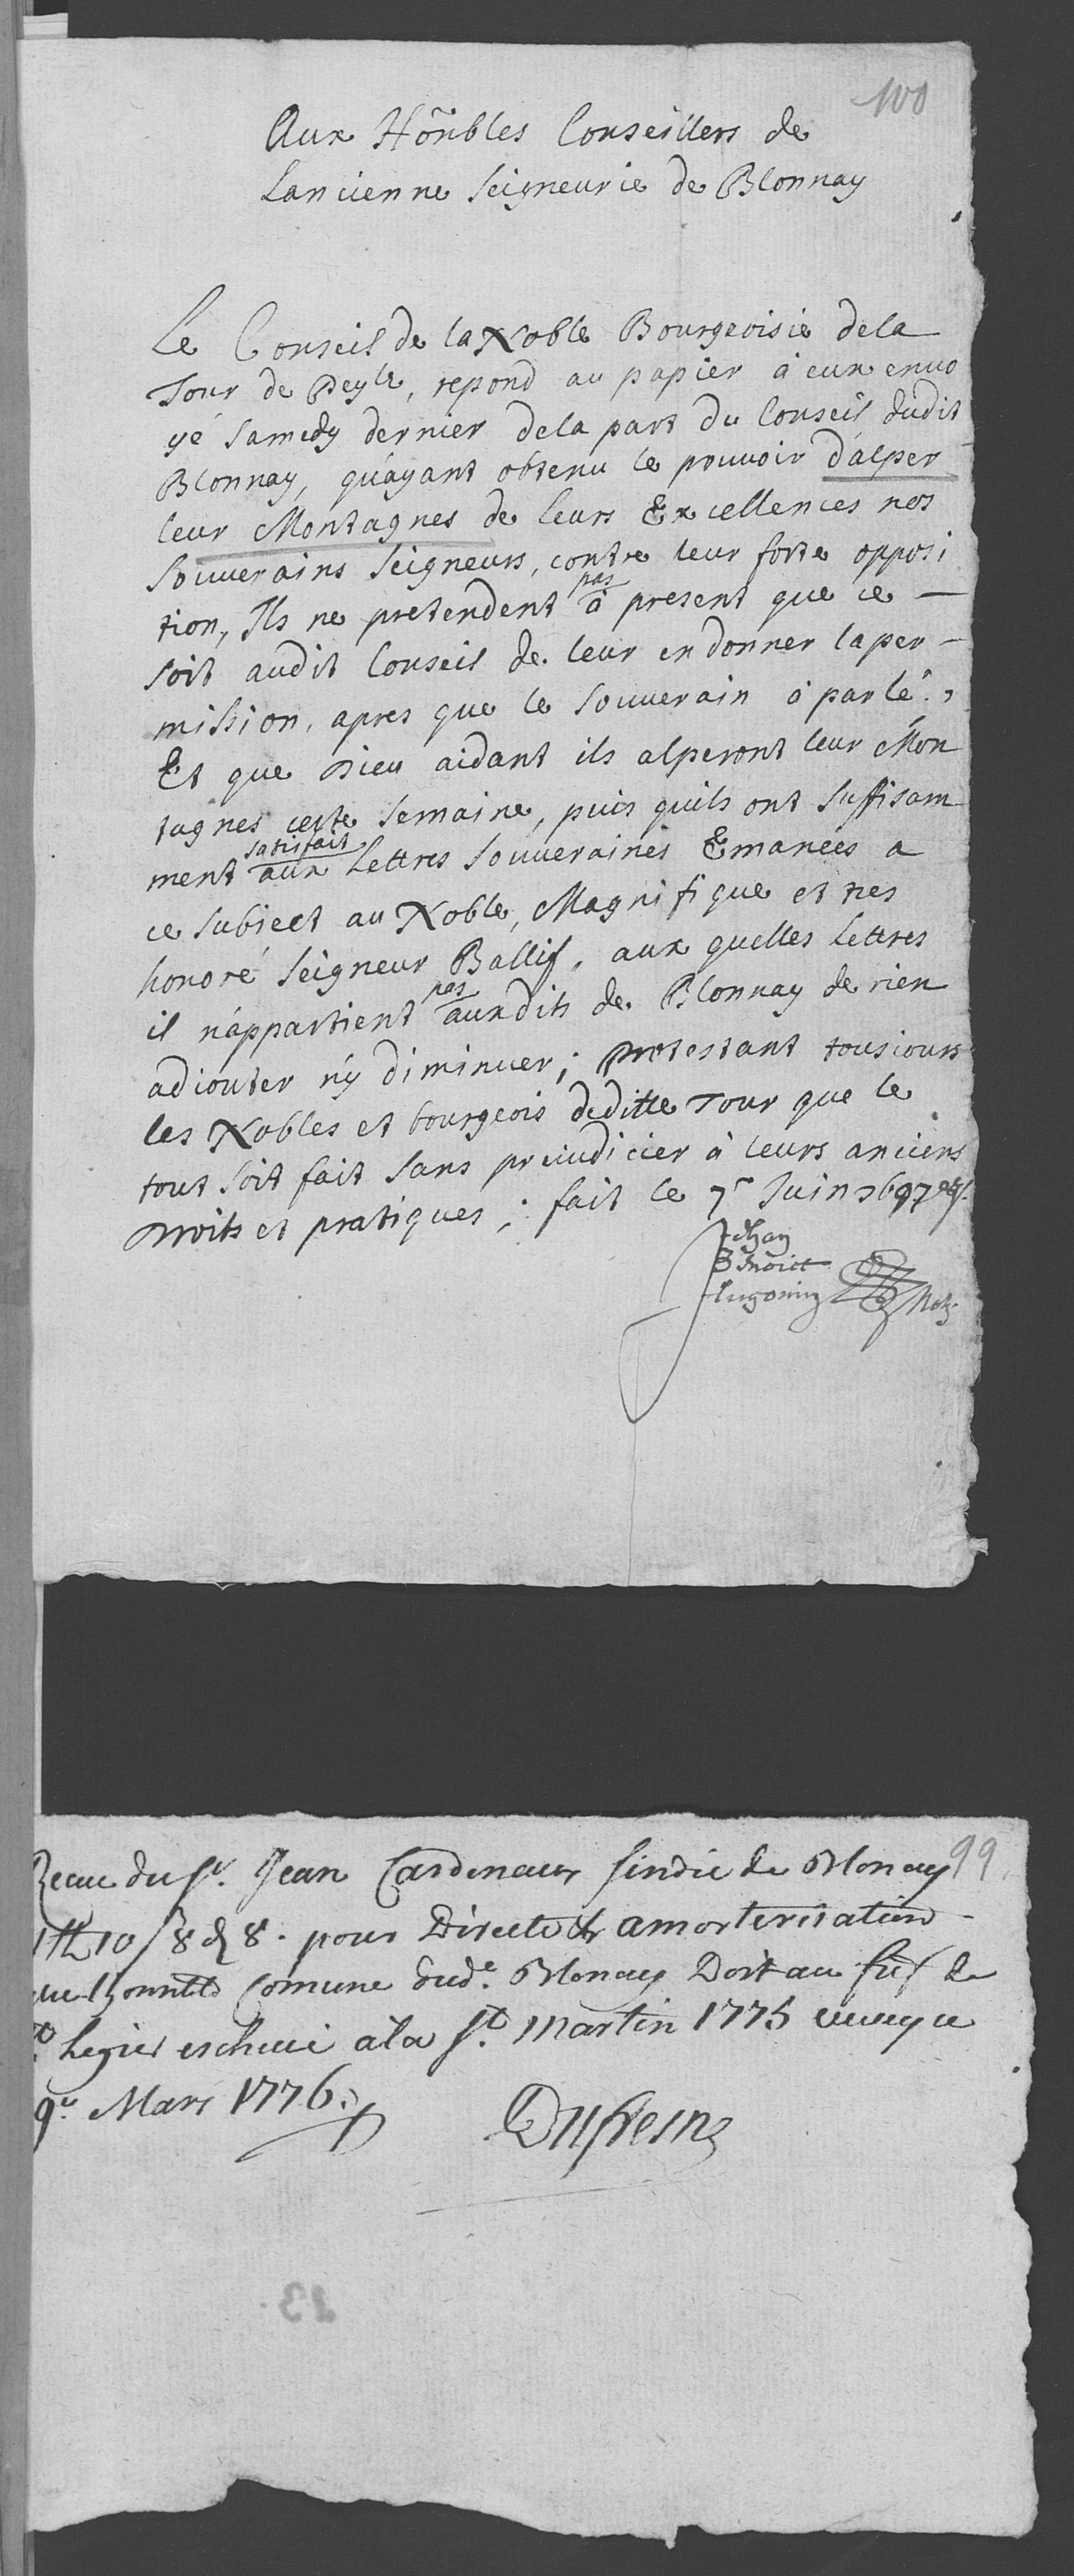 100
Aux Hoñbles Conseillers de
Lancienne Seigneurie de Blonnay
Le Conseil de la Noble Bourgeoisie dela
Tour de Peylz, repond au papier à eux envo
yé Samedy dernier dela part du Conseil dudit
Blonnay, qu'ayant obtenu le pouvoir d'alper
leur Montagnes de leurs Excellences nos
Souverains Seigneurs, contre leur forte opposi
tion, Ils ne pretendent pas à present que ce —
soit audit Conseil de leur en donner la per-
mission, apres que le Souverain à parlé,
Et que Dieu aidant ils alperont leur Mon
tagnes ceste semaine, puis quils ont suffisam
ment satisfait aux Lettres Souveraines Emanées a
ce subiect au Noble, Magnifique et tres
honoré Seigneur Ballif, aux quelles Lettres
il n'appartient pas auxdits de Blonnay de rien
adiouter ny diminuer; Protestant tousiours
les Nobles et bourgeois deditte Tour que le
tout soit fait sans preiudicier à leurs anciens
Droits et pratiques; fait le 7e Juin 1697
Jehan
Benoict
Hugonin Not:
99
Receu du Sr. Jean Cardinaux sindic de Blonay
10 8 8. pour Directe & amorterisation
que lhonnble Comune dudt. Blonay Doit au fief de
St. Legier escheue à la St. Martin 1775 ce
9e. Mars 1776.
Dufresne
13.